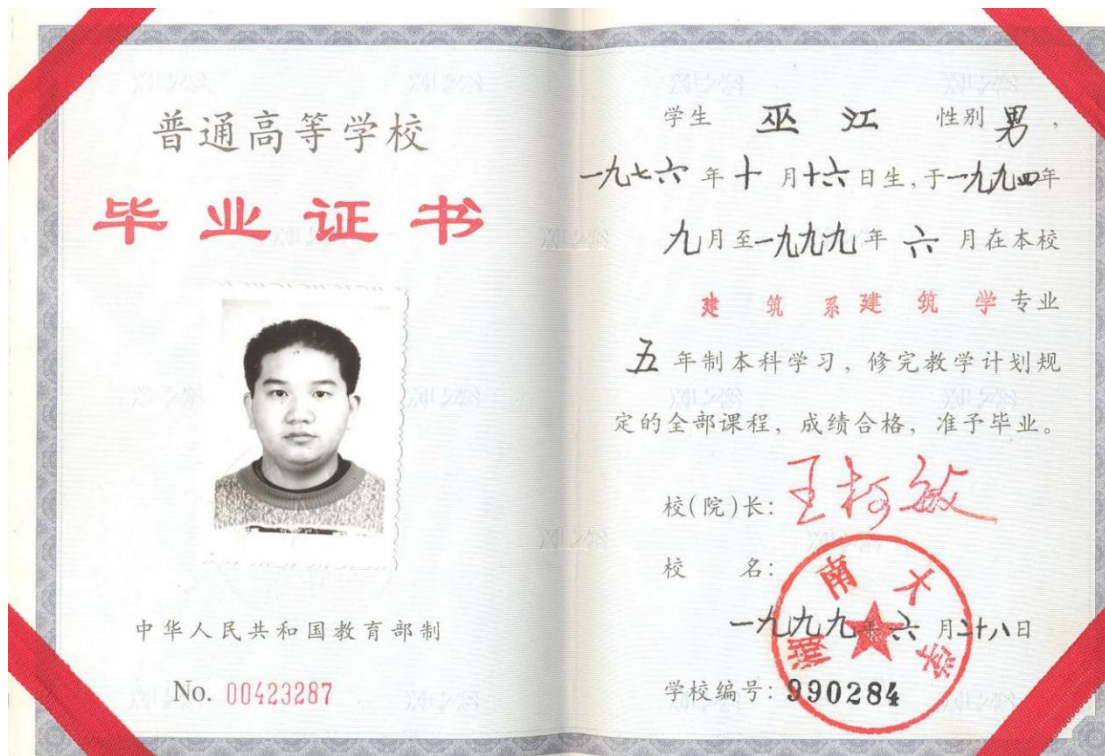 普通高等学校
毕业证书
中华人民共和国教育部制
No. 00423287
学生 巫江 性别 男，
一九七六年十月十六日生，于一九九四年
九月至一九九九年六月在本校
建筑系建筑学专业
五年制本科学习，修完教学计划规
定的全部课程，成绩合格，准予毕业。
校(院)长：王柯敏
校 名：
湖南大学
一九九九年六月二十八日
学校编号：990284